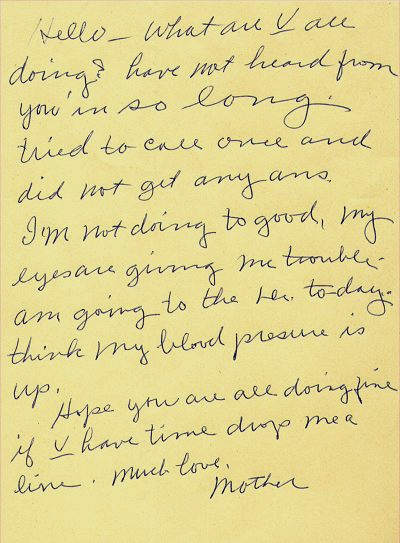 Hello - what are V all
doing? have not heard from
you in so long.
tried to call once and
did not get any ans.
I'm not doing to good, my
eyes are giving me trouble.
am going to the Dr. to-day.
think my blood presure is
up.
Hope you are all doing fine
if V have time drop me a
line. Much love.
Mother